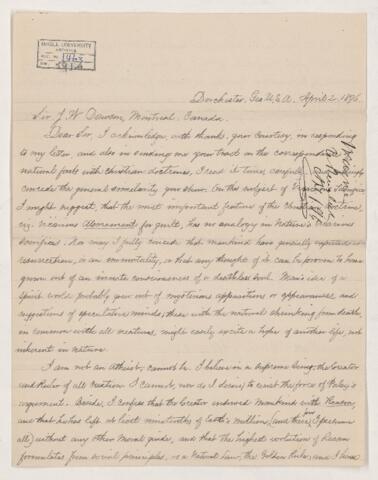 McGILL UNIVERSITY
ARCHIVES
ACC. NO.
REF.
Dorchester, Geo. U.S.A. April 2, 1895.
Sir J. W. Dawson, Montreal, Canada.
Dear Sir, I acknowledge, with thanks, your courtesy, in responding
to my letter, and also in sending me your tract on the correspondence
natural facts with christian doctrines. I read it times carefully
concede the general similarity you show. On the subject of Vicarious
I might suggest, that the most important feature of this Christian doctrine,
viz. Vicarious Atonement for guilt, has no analogy in Nature's Vicarious
Sacrifices. Nor may I fully concede that mankind have generally expected a
resurrection, or an immortality, or that any thought of it can be proven to have
grown out of an innate consciousness of a deathless soul. Man's idea of a
Spirit world probably grew out of mysterious apparitions or appearances and
suggestions of speculative minds; these with the natural shrinking from death,
in common with all creatures, might easily excite a hope of another life, not
inherent in nature.
I am not an atheist, cannot be. I believe in a Supreme being, the Creator
and Ruler of all creation. I cannot, nor do I desire, to resist the force of Paley's
argument. Beside, I confess that the Creator endowed Mankind with Reason,
and that he has left at least nine tenths of Earth's millions, (and here I presume
all) without any other Moral guide, and that the highest evolution of Reason
formulates from social principles, as a Natural Law, the Golden Rule; and I have